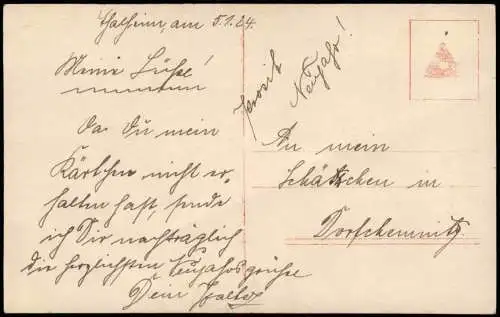 Thalheim, am 5.1.24.
Meine Süße!
Da Du mein
Kärtchen nicht er-
halten hast, sende
ich Dir nachträglich
die herzlichsten Neujahrsgrüße
Dein Walter
Prosit
Neujahr!
An mein
Schätzchen in
Dorfchemnitz